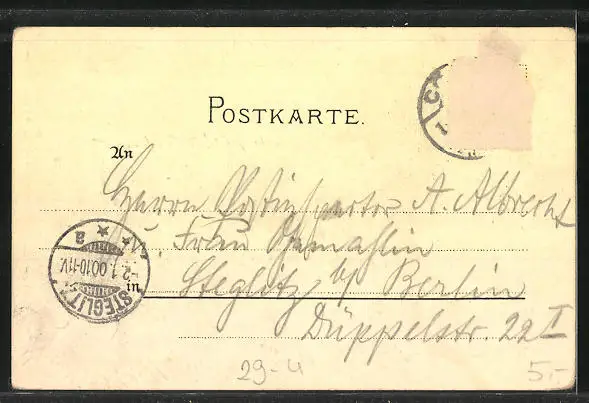 POSTKARTE.
C
1
An
Herrn Postinspector A. Albrecht
u. Frau Gemahlin
STEGLITZ
-2.1.00.10-11V.
a
in
Steglitz b/ Berlin
Düppelstr. 22 I
29-4
5.-